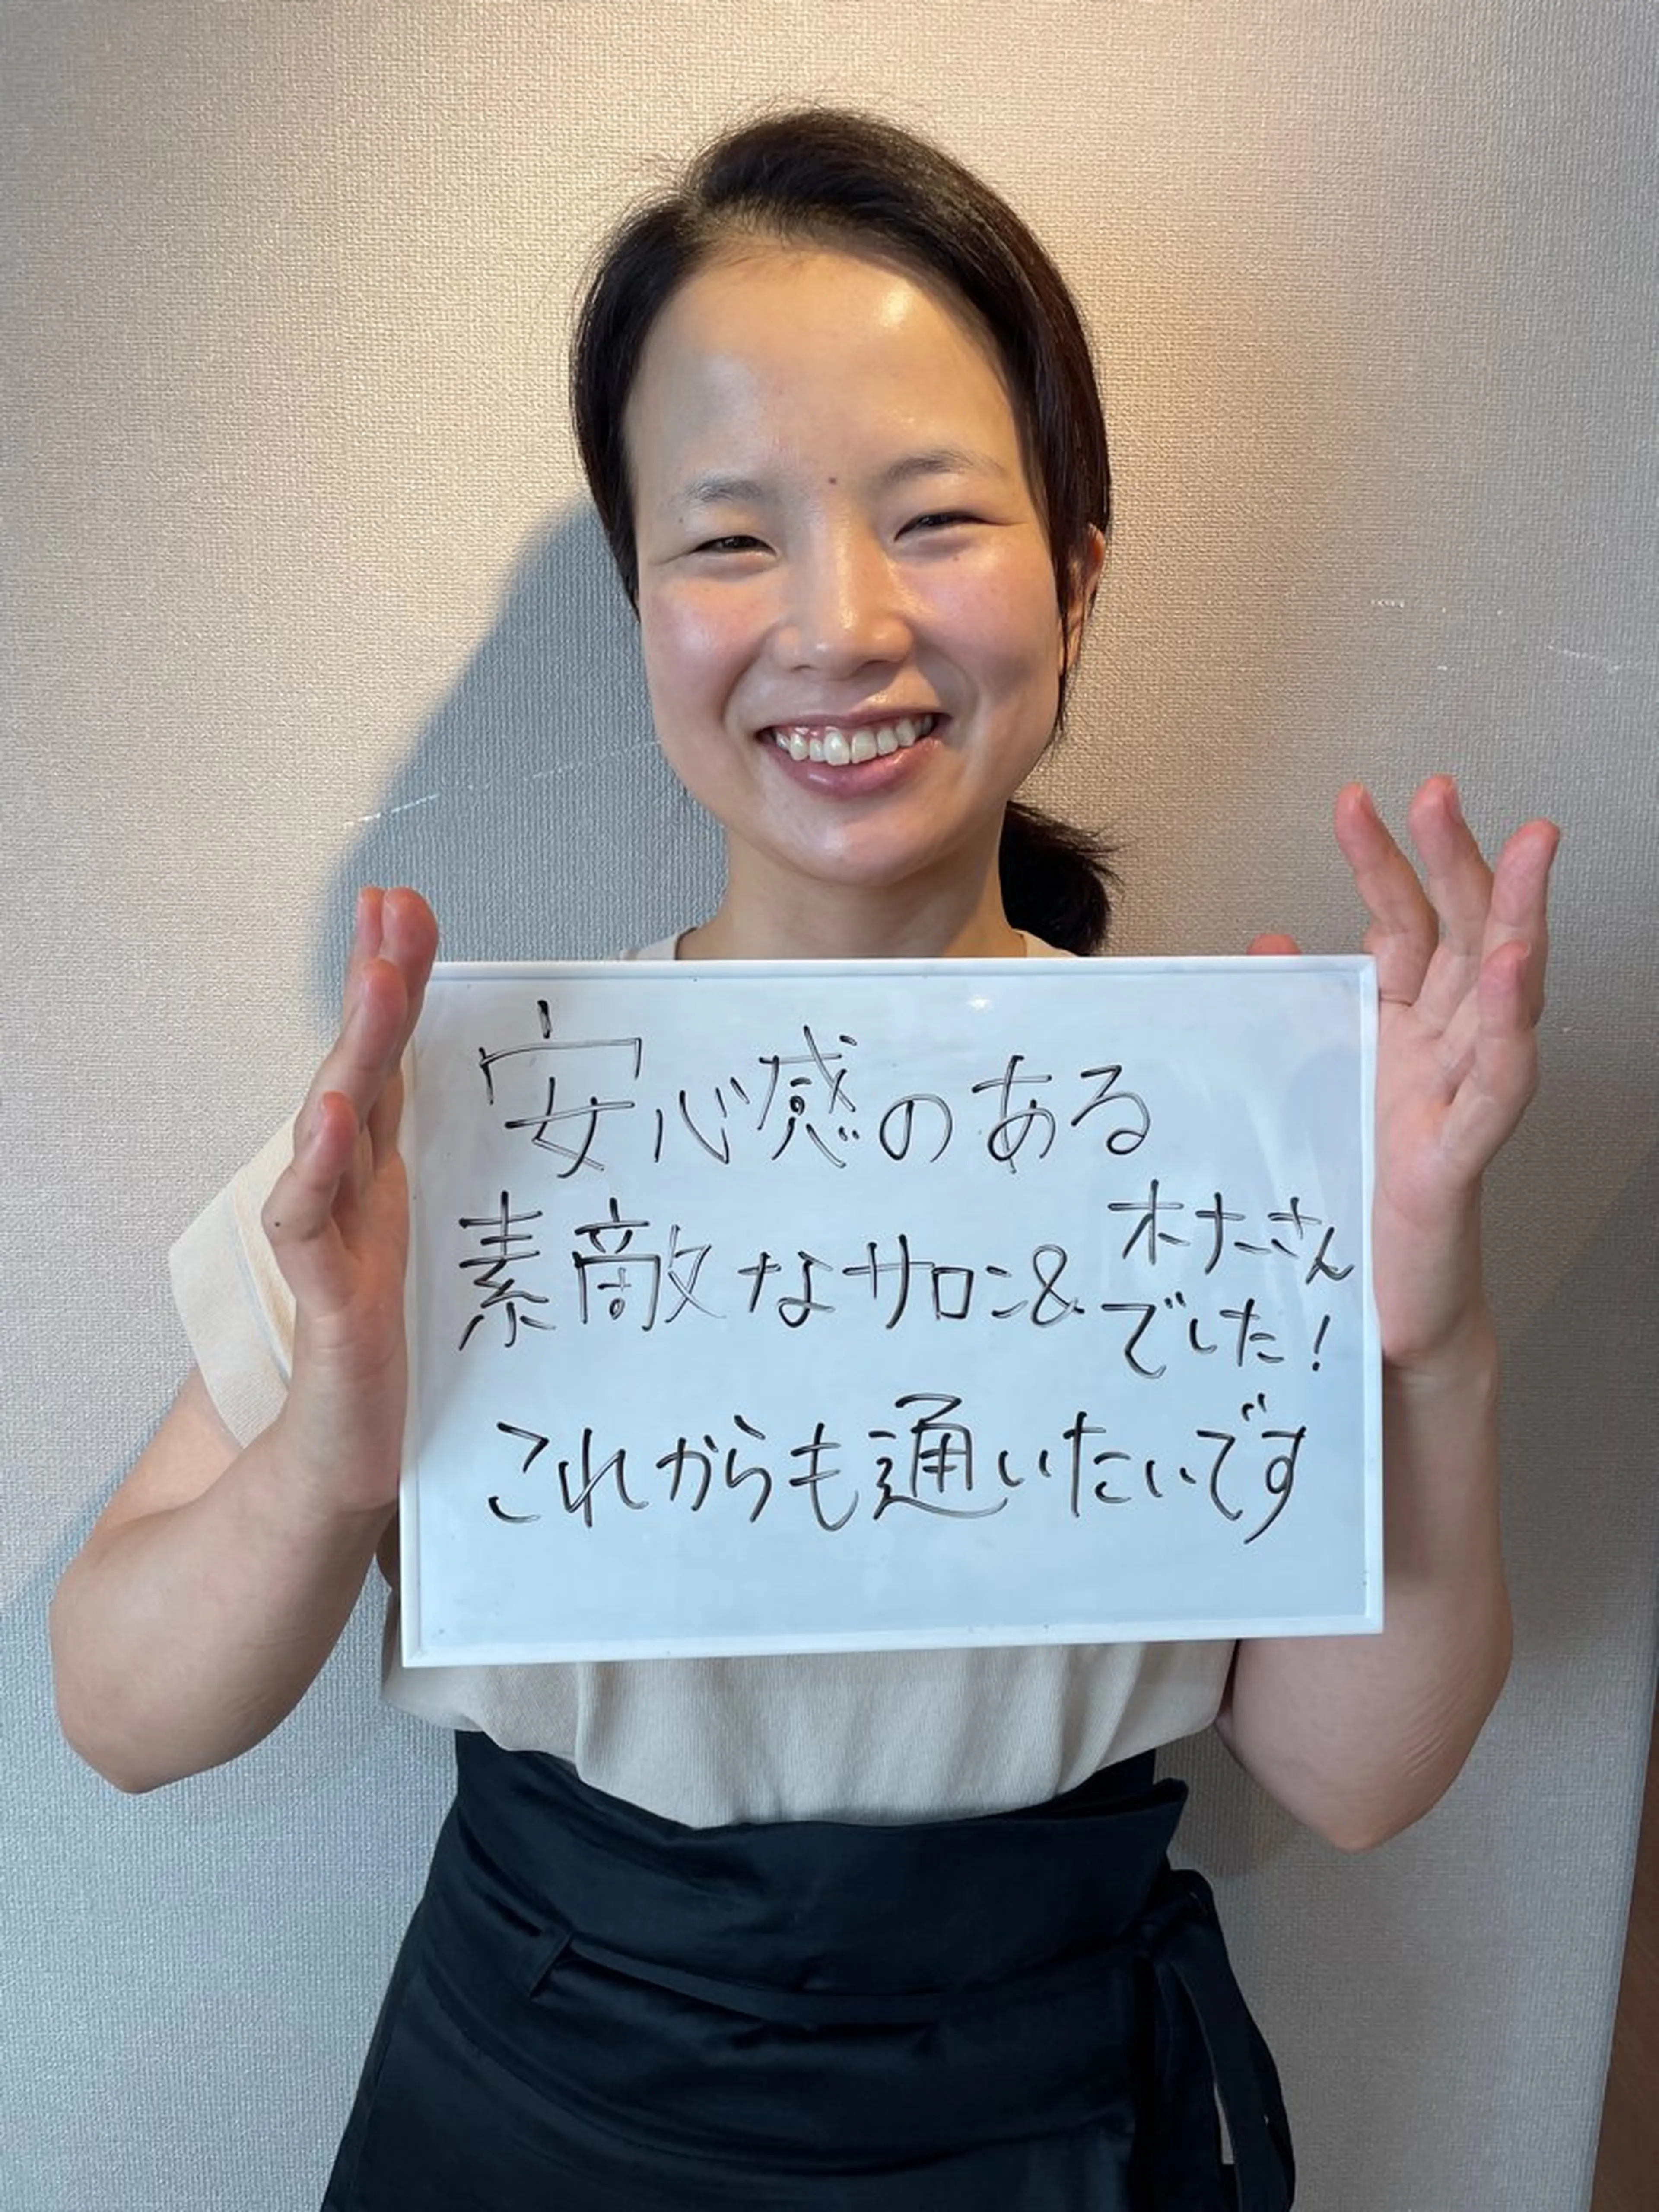 安心感のある
素敵なサロン& オナーさん
でした!
これからも通いたいです